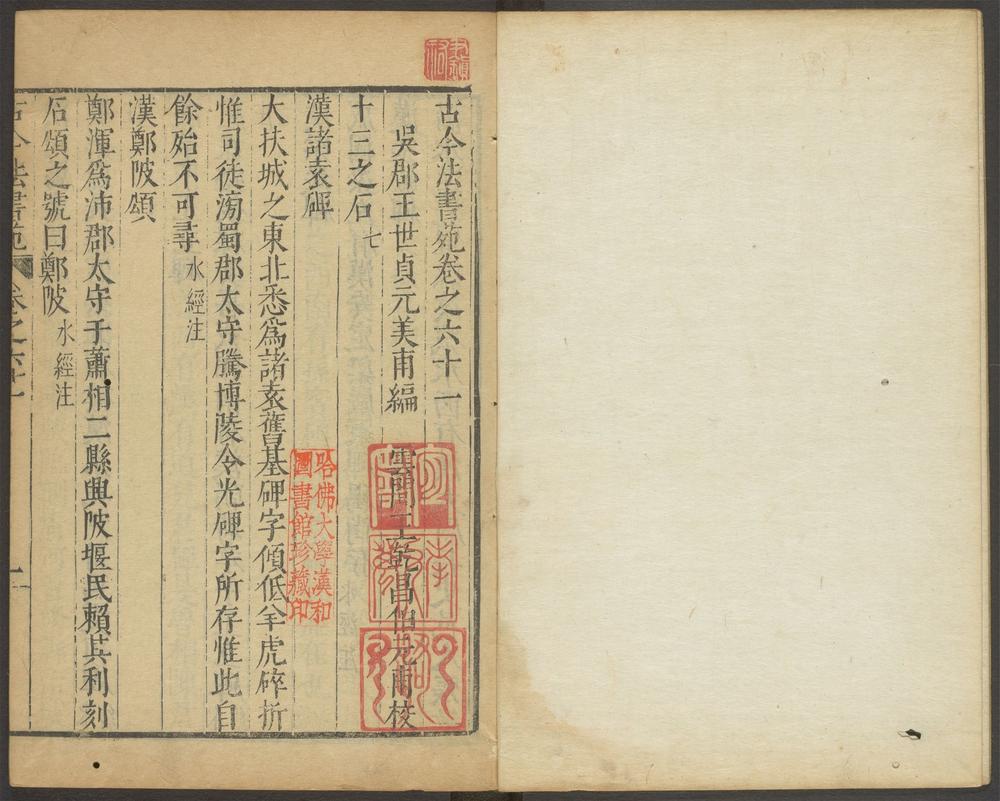 古今法書苑卷之六十一
吳郡王世貞元美甫編 雲間王乾昌伯元甫校
十三之石七
漢諸袁碑
大扶城之東北悉為諸袁舊基碑字傾低羊虎碎折
惟司徒滂蜀郡太守騰博陵令光碑字所存惟此自
餘殆不可尋水經注
漢鄭陂頌
鄭渾爲沛郡太守于蕭相二縣興陂堰民賴其利刻
石頌之號曰鄭陂水經注
古今法書苑 卷之六十一 一
哈佛大學漢和
圖書館珍藏印